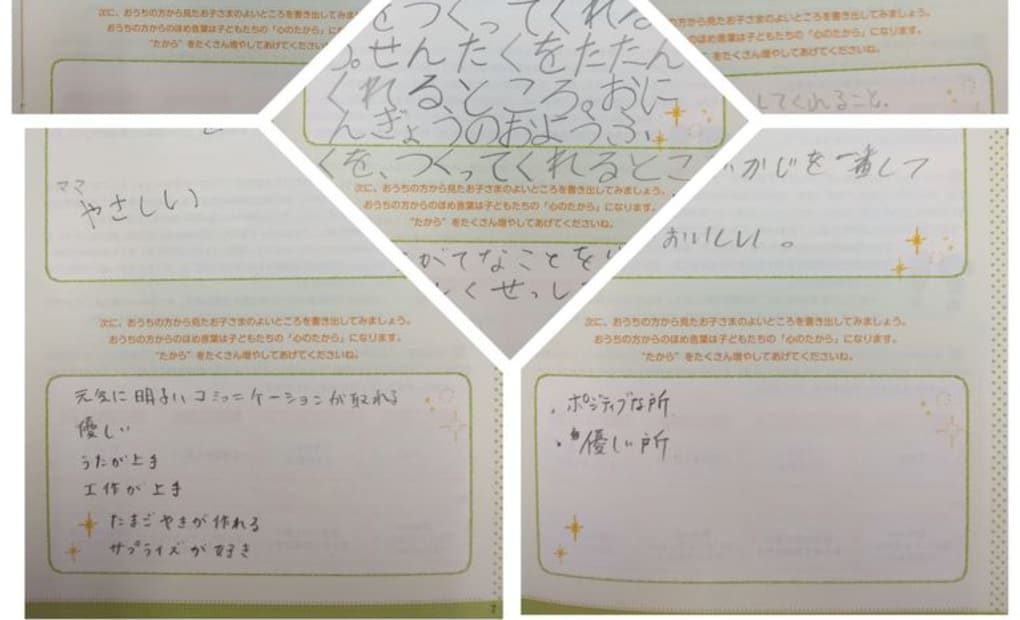 次に、おうちの方から見たお子さまのよいところを書き出してみま
おうちの方からのほめ言葉は子どもたちの「心のたから」にな
"たから"をたくさん増やしてあげてくださ
をつくってくれる
う。せんたくをたたん
くれる、ところ。おに
んぎょうのおようふ
くを、つくってくれるとこ
次に、おうちの方から見たお子さまのよいところを書き出してみましょう。
おうちの方からのほめ言葉は子どもたちの「心のたから」になります。
"たから"をたくさん増やしてあげてくださいね。
がてなことを
しくせっし
見たお子さまのよいところを書き出してみましょう。
め言葉は子どもたちの「心のたから」になります。
たくさん増やしてあげてくださいね。
してくれること。
ママ
やさしい
かじを一番して
おいしい。
次に、おうちの方から見たお子さまのよいところを書き出してみましょう。
おうちの方からのほめ言葉は子どもたちの「心のたから」になります。
"たから"をたくさん増やしてあげてくださいね。
元気に明るいコミュニケーションが取れる
優しい
うたが上手
工作が上手
たまごやきが作れる
サプライズが好き
7
次に、おうちの方から見たお子さまのよいところを書き出してみましょう。
おうちの方からのほめ言葉は子どもたちの「心のたから」になります。
"たから"をたくさん増やしてあげてくださいね。
・ポジティブな所
・優しい所